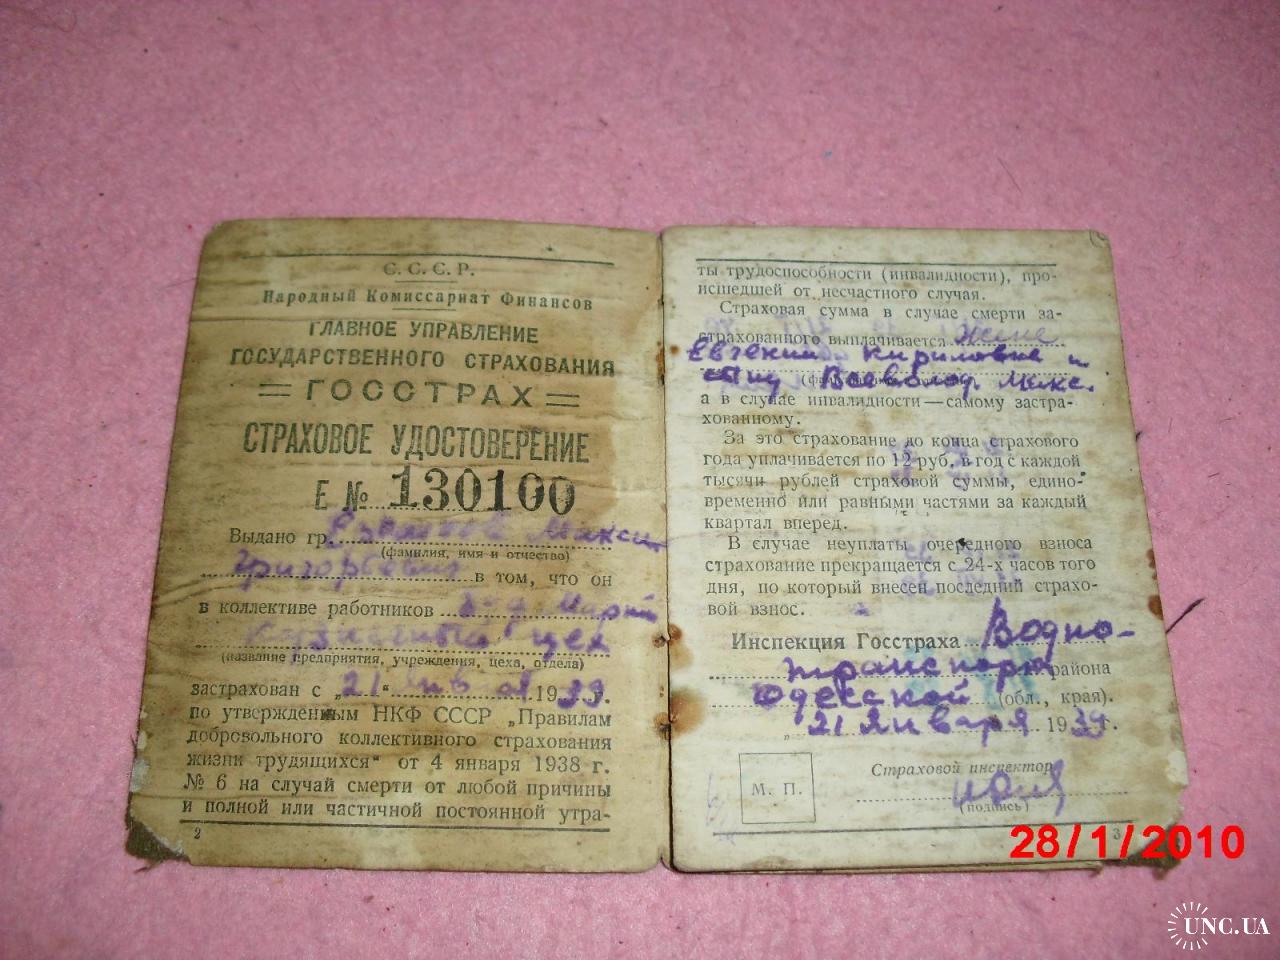 С.С.С.Р.
Народный Комиссариат Финансов
ГЛАВНОЕ УПРАВЛЕНИЕ
ГОСУДАРСТВЕННОГО СТРАХОВАНИЯ
= ГОССТРАХ =
СТРАХОВОЕ УДОСТОВЕРЕНИЕ
Е № 130100
Выдано гр. Максим
(фамилия, имя и отчество)
Григорьевич в том, что он
в коллективе работников
цех
(название предприятия, учреждения, цеха, отдела)
застрахован с „21“ янв 1939 г.
по утвержденным НКФ СССР „Правилам
добровольного коллективного страхования
жизни трудящихся“ от 4 января 1938 г.
№ 6 на случай смерти от любой причины
и полной или частичной постоянной утра-
2
ты трудоспособности (инвалидности), про-
исшедшей от несчастного случая.
Страховая сумма в случае смерти за-
страхованного выплачивается жене
Евгении Кириловне и
сыну Всеволод Макс.
а в случае инвалидности — самому застра-
хованному.
За это страхование до конца страхового
года уплачивается по 12 руб. в год с каждой
тысячи рублей страховой суммы, едино-
временно или равными частями за каждый
квартал вперед.
В случае неуплаты очередного взноса
страхование прекращается с 24-х часов того
дня, по который внесен последний страхо-
вой взнос.
Инспекция Госстраха Водно-
транспорт района
Одесской (обл., края).
„21 января 1939 г.
Страховой инспектор
М. П.
(подпись)
3
28/1/2010
UNC.UA